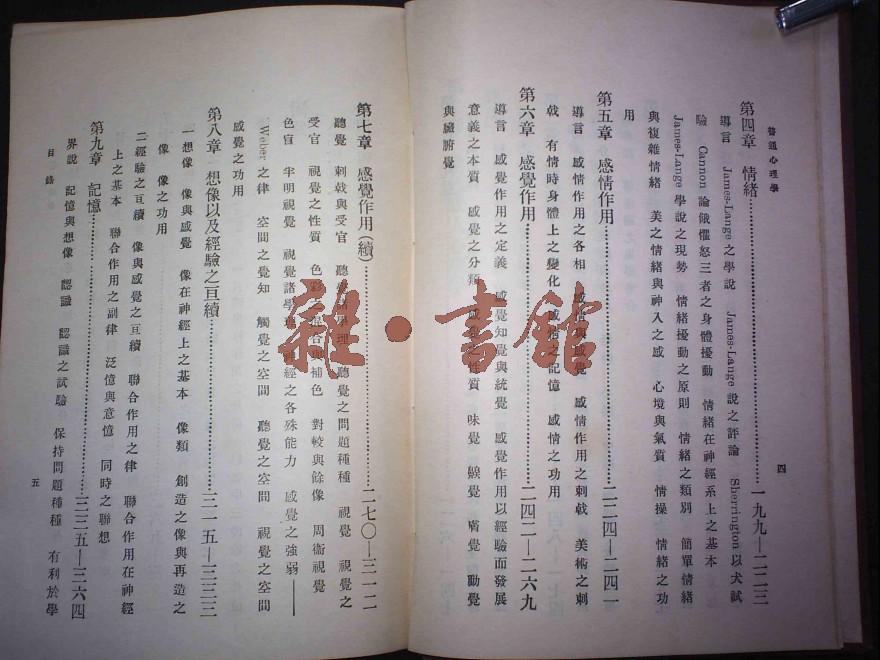 普通心理學
四
第四章 情緒……一九九—二二三
導言 James-Lange之學說 James-Lange說之評論 Sherrington以犬試
驗 Cannon論餓懼怒三者之身體擾動 情緒在神經系上之基本
James-Lange學說之現勢 情緒擾動之原則 情緒之類別 簡單情緒
與複雜情緒 美之情緒與神入之感 心境與氣質 情操 情緒之功
用
第五章 感情作用……二二四—二四一
導言 感情作用之各相 感情與感覺 感情作用之刺戟 美術之刺
戟 有情時身體上之變化 感情之記憶 感情之功用
第六章 感覺作用……二四二—二六九
導言 感覺作用之定義 感覺知覺與統覺 感覺作用以經驗而發展
意義之本質 感覺之分類 感覺之性質 味覺 嗅覺 膚覺 動覺
與臟腑覺
第七章 感覺作用(續)……二七〇—三一二
聽覺 刺戟與受官 聽覺諸學理 聽覺之問題種種 視覺 視覺之
受官 視覺之性質 色彩之混合與補色 對較與餘像 周衞視覺
色盲 半明視覺 視覺諸學理 神經之各殊能力 感覺之強弱——
Weber之律 空間之覺知 觸覺之空間 聽覺之空間 視覺之空間
感覺之功用
第八章 想像以及經驗之亘續……三一五—三三三
一想像 像與感覺 像在神經上之基本 像類 創造之像與再造之
像 像之功用
二經驗之亘續 像與感覺之亘續 聯合作用之律 聯合作用在神經
上之基本 聯合作用之副律 泛憶與意憶 同時之聯想
第九章 記憶……三三五—三六四
界說 記憶與想像 認識 認識之試驗 保持問題種種 有利於學
目錄
五
雜·書館